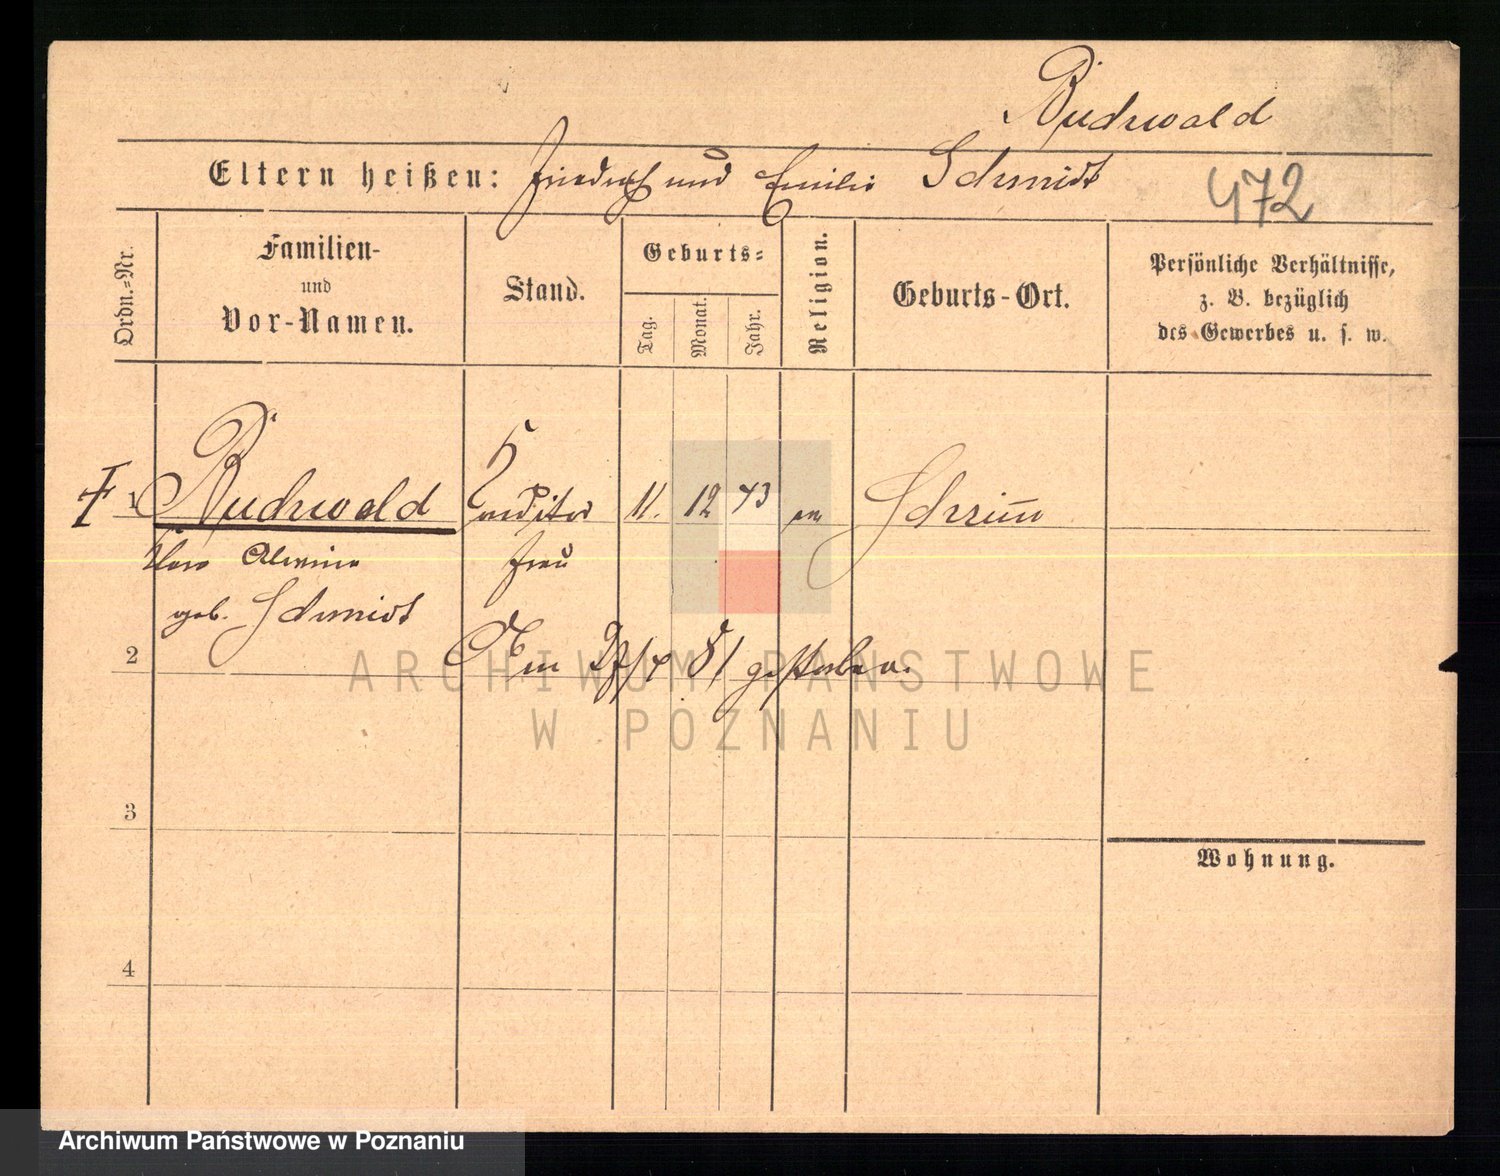 Rudwald
Eltern heißen: Friedrich und Emilie Schmidt
472
Ordn.=Nr.
Familien-
und
Vor-Namen.
Stand.
Geburts=
Tag.
Monat.
Jahr.
Religion.
Geburts-Ort.
Persönliche Verhältnisse,
z. B. bezüglich
des Gewerbes u. s. w.
1 Conditor 11. 12 43 Schrimm
frau
geb. Schmidt
2 Am gestorben.
3
4
Wohnung.
ARCHIWUM PAŃSTWOWE
W POZNANIU
Archiwum Państwowe w Poznaniu